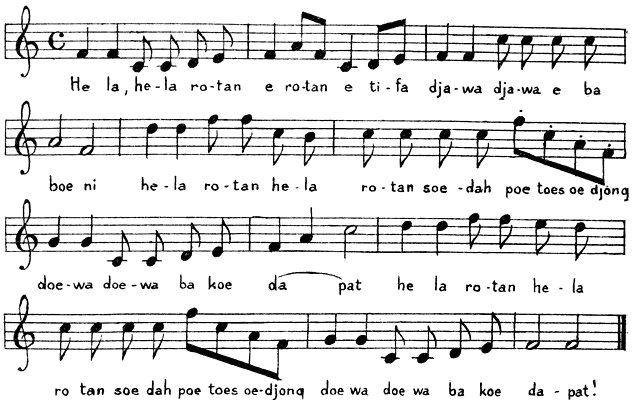 He la, he-la ro-tan e ro-tan e ti-fa dja-wa dja-wa e ba
boe ni he-la ro-tan he-la ro-tan soe-dah poe toes oe djong
doe-wa doe-wa ba koe da pat he la ro-tan he-la
ro tan soe dah poe toes oe-djong doe wa doe wa ba koe da-pat!